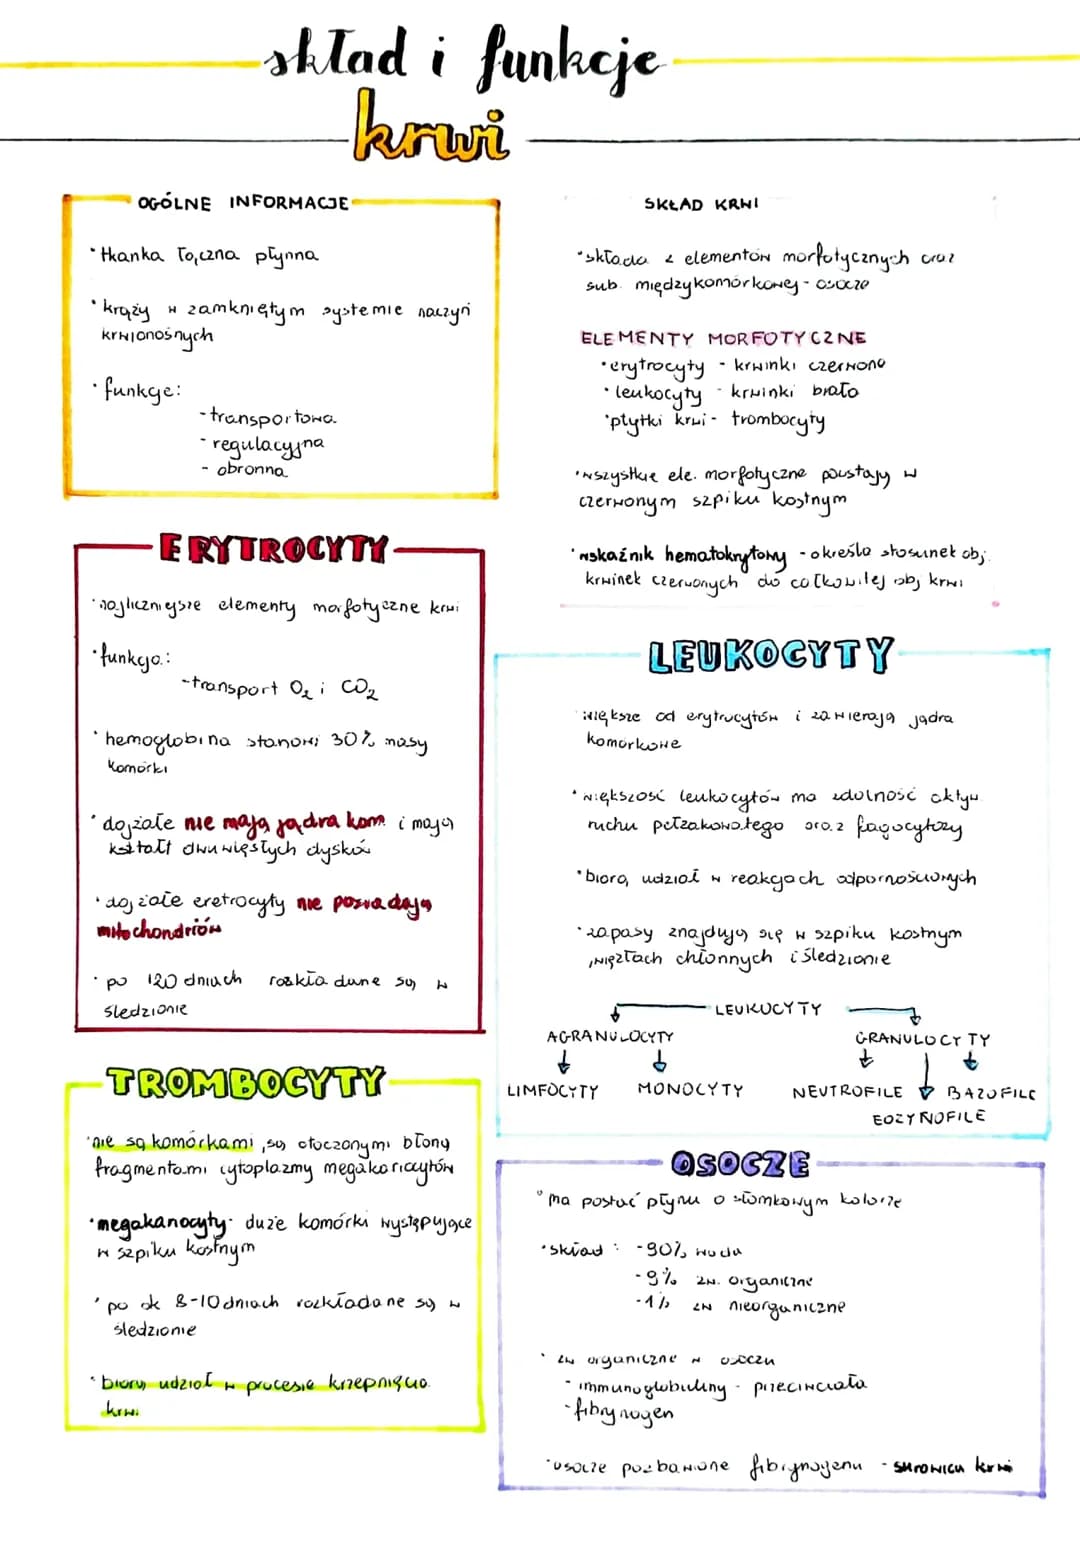 skład i funkcje
krwi
OGÓLNE INFORMACJE
• tkanka łączna płynna
• krąży w zamkniętym systemie naczyń
krwionośnych
• funkcje:
- transportowa
- regulacyjna
- obronna
SKŁAD KRWI
• składa z elementów morfotycznych oraz
sub. międzykomórkowej - osocze
ELEMENTY MORFOTYCZNE
• erytrocyty - krwinki czerwone
• leukocyty - krwinki białe
• płytki krwi - trombocyty
• wszystkie ele. morfotyczne powstają w
czerwonym szpiku kostnym
• wskaźnik hematokrytowy - określa stosunek obj.
krwinek czerwonych do całkowitej obj krwi
ERYTROCYTY
• najliczniejsze elementy morfotyczne krwi
• funkcja:
- transport O₂ i CO₂
• hemoglobina stanowi 30% masy
komórki
• dojrzałe nie mają jądra kom. i mają
kształt dwuwklęsłych dysków
• dojrzałe eretrocyty nie posiadają
mitochondriów
• po 120 dniach rozkładane są w
śledzionie
LEUKOCYTY
większe od erytrocytów i zawierają jądra
komórkowe
• większość leukocytów ma zdolność aktyw.
ruchu pełzakowatego oraz fagocytozy
• biorą udział w reakcjach odpornościowych
• zapasy znajdują się w szpiku kostnym
, węzłach chłonnych i śledzionie
LEUKOCYTY
AGRANULOCYTY GRANULOCYTY
LIMFOCYTY MONOCYTY NEUTROFILE BAZOFILE
EOZYNOFILE
TROMBOCYTY
• nie są komórkami, są otoczonymi błoną
fragmentami cytoplazmy megakariocytów
• megakariocyty - duże komórki występujące
w szpiku kostnym
• po ok 8-10 dniach rozkładane są w
śledzionie
• biorą udział w procesie krzepnięcia
krwi
OSOCZE
• ma postać płynu o słomkowym kolorze
• skład: - 90% woda
- 9% zw. organiczne
- 1% zw nieorganiczne
• zw organiczne w osoczu
- immunoglobuliny - przeciwciała
- fibrynogen
• osocze pozbawione fibrynogenu - surowica krwi